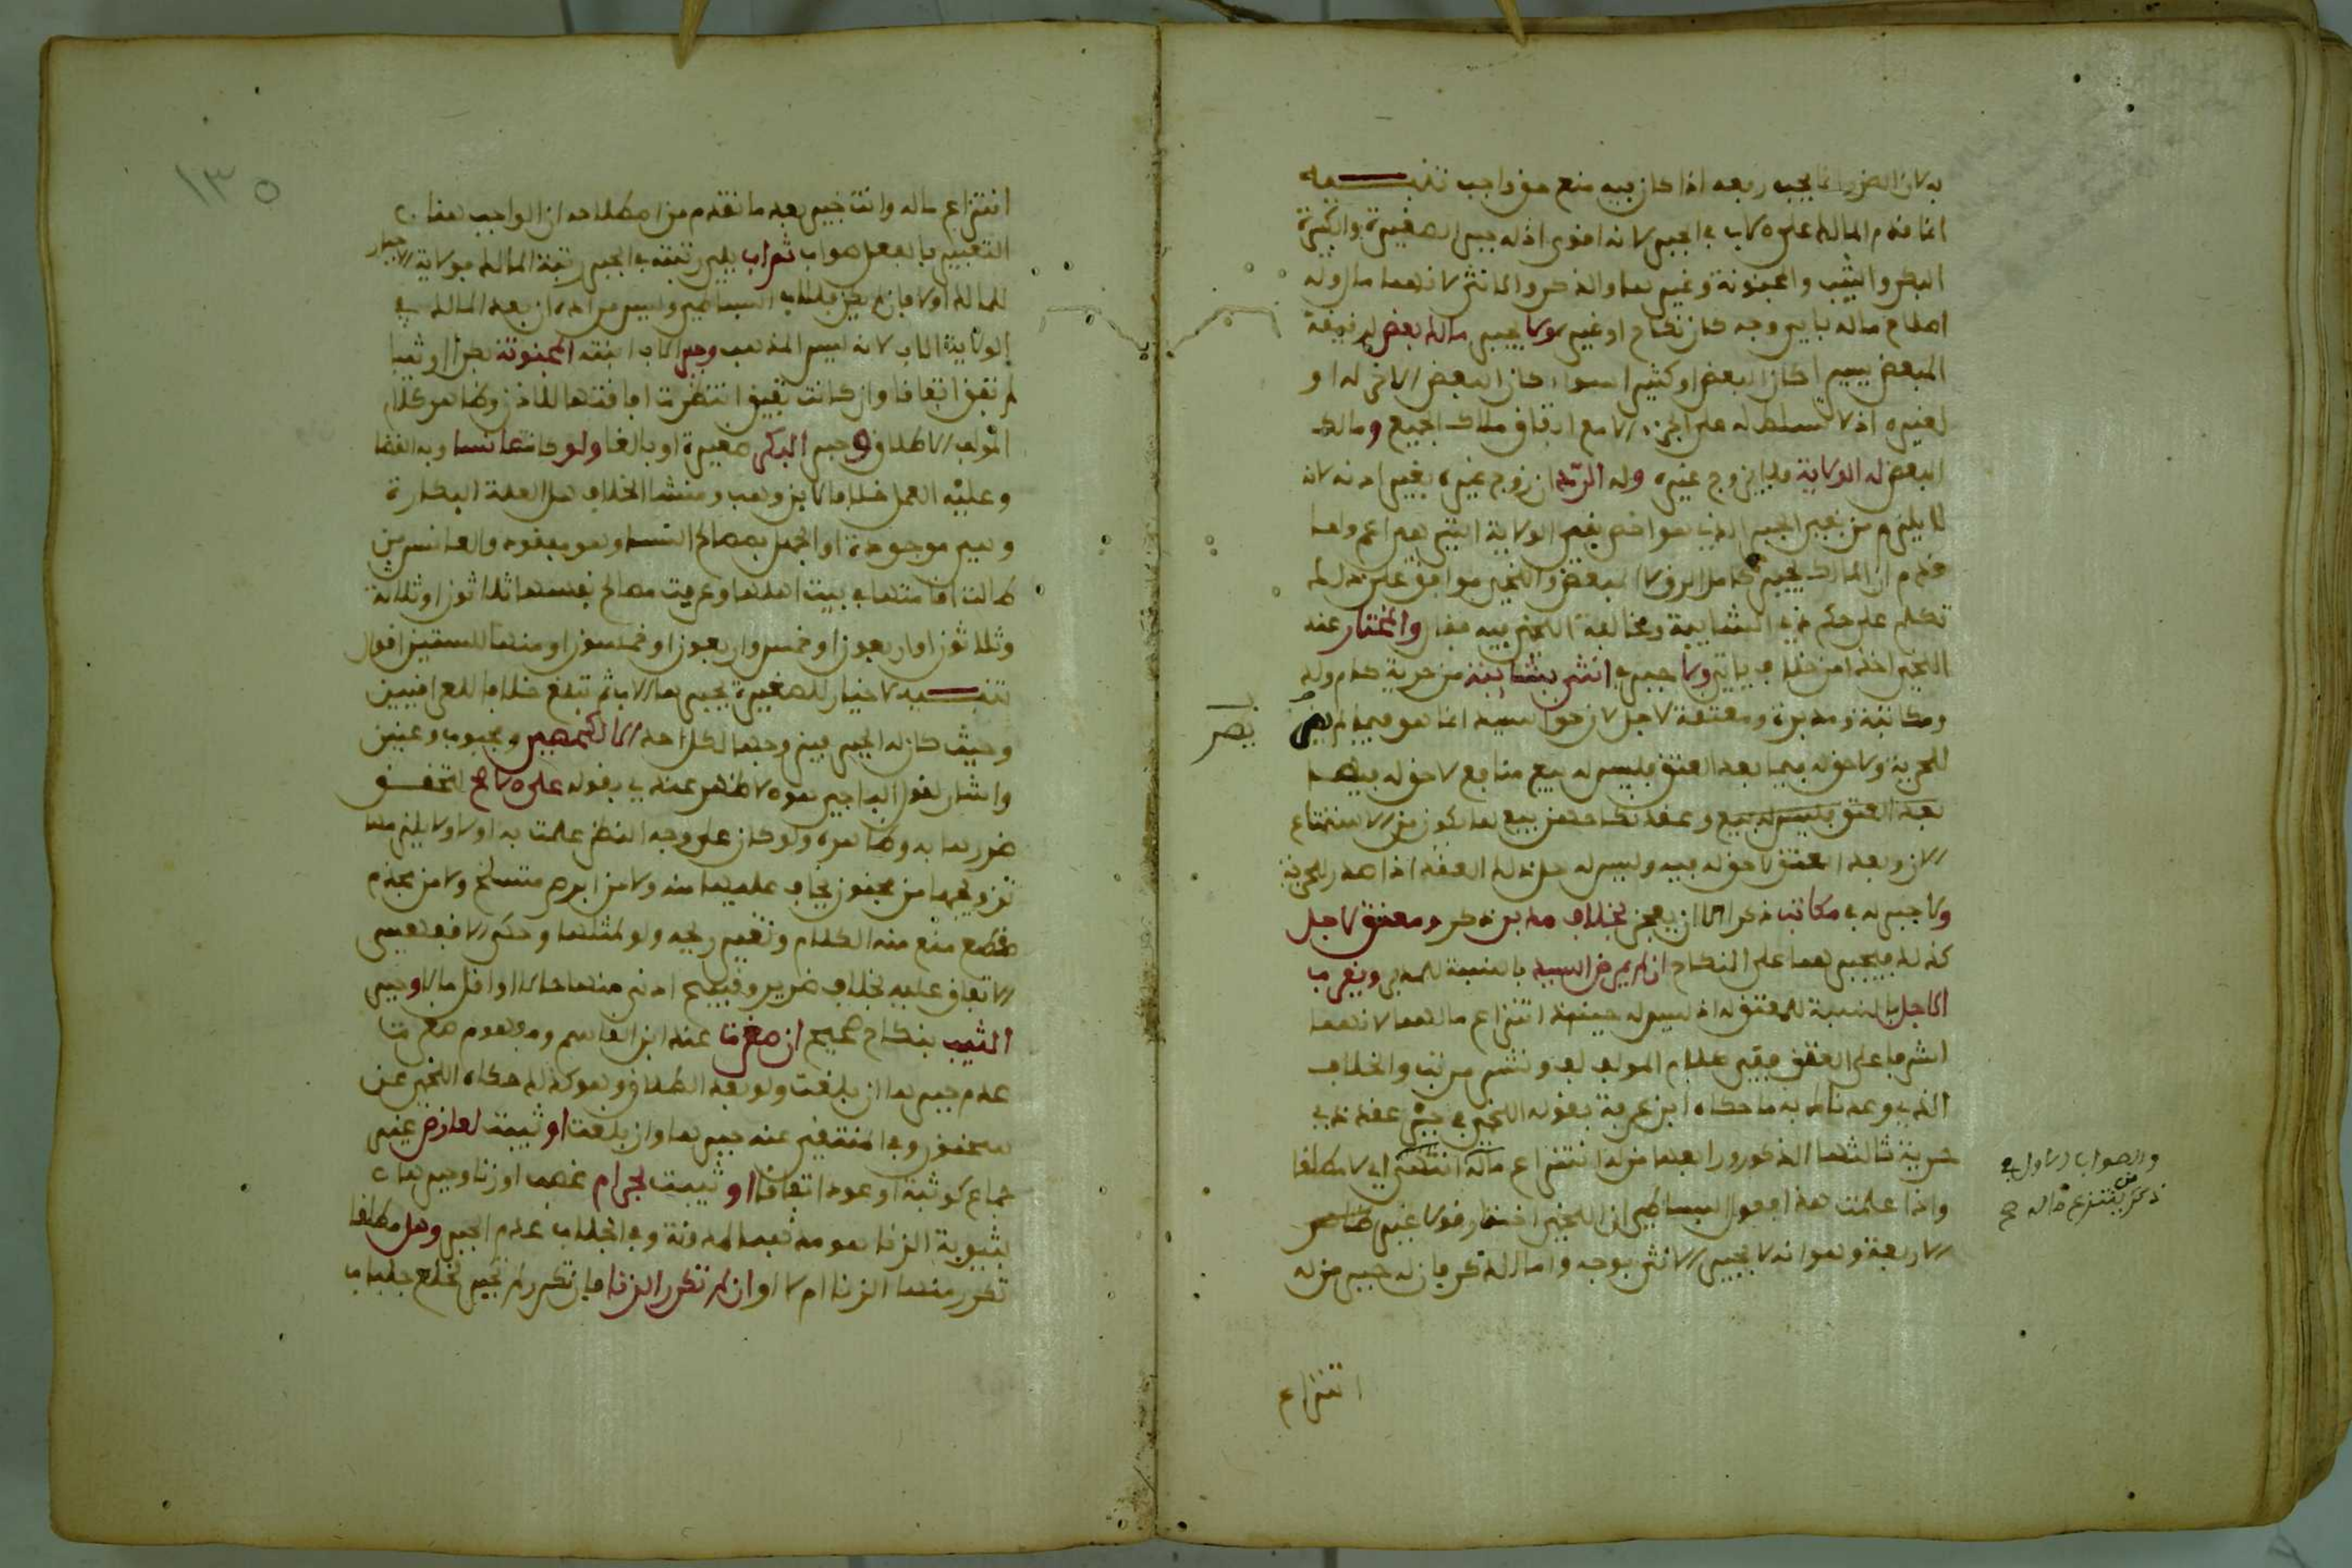 به لان الضرر انما يجب رفعه اذا كان فيه منع حق واجب تنبيه
انما قدم المالك على الاب في الجبر لانه اقوى اذ له جبر الصغيرة والكبيرة
البكر والثيب والمجنونة وغيرها والذكر والانثى لانهما مال وله
اصلاح ماله باي وجه كان نكاح او غيره ولا يجبر مالك بعض لرقيقه
المبعض يسيرا كان البعض او كثيرا سواء كان البعض الاخر له او
لغيره اذ لا تسلط له على الجزء الا مع اتفاق ملاك الجميع ومالك
البعض له الولاية فلا يزوج غيره وله الرد ان زوج غيره بغير اذنه لانه
لا يلزم من نفي الجبر الذي هو اخص نفي الولاية التي هي اعم ولما
قدم ان المالك يجبر كامل الرق لا المبعض واللخمي موافق على ذلك
تكلم على حكم ذي الشايبة ومخالفة اللخمي فيه فقال والمختار عند
اللخمي اخذا من خلاف ياتي ولا جبر في انثى بشايبة من حرية كام ولد
ومكاتبة ومدبرة ومعتقة لاجل لان حق السيد انما هو فيما لم يصر
يصر
للحرية ولا حق له فيما بعد العتق فليس له بيع منافع لا حق له فيها
بعد العتق فليس له بيع وعقد نكاحهن بيع لما يكون من الاستمتاع
الان وبعد العتق لا حق له فيه وليس له حل ذلك العقد اذا صدر للحرية
ولا جبر له في مكاتب ذكر الا ان يعجز بخلاف مدبر ذكر ومعتق لاجل
كذلك فيجبرهما على النكاح ان لم يمرض السيد بالنسبة للمدبر ويقرب
الاجل بالنسبة للمعتق له اذ ليس له حينئذ انتزاع مالهما لانهما
اشرفا على العتق ففي كلام المولف لف ونشر مرتب والخلاف
الذي وعدناك به ما حكاه ابن عرفة بقوله اللخمي في جبر عقد ذي
حرية ثالثها الذكور ورابعها من له انتزاع ماله انتهى اي لا مطلقا
واذا علمت هذا فقول البساطي ان اللخمي اختار قولا غير ظاهر
الاربعة وهو انه لا يجبر الانثى بوجه واما الذكر فان له جبر من له
والصواب الاول في
ذكر من ينتزع ماله صح
انتزاع
١٣٥
انتزاع ماله وانت خبير بعد ما تقدم من اصطلاحه ان الواجب هنا
التعبير بالفعل صواب ثم اب يلي رتبته في الجبر رتبة المالك فولاية الاجبار
للمالك اولا فان لم يكن فللاب البساطي وليس مراده ان بعد المالك في
الولاية الاب لانه ليس المذهب وجبر الاب ابنته المجنونة بكرا او ثيبا
لم تفق اتفاقا وان كانت تفيق انتظرت افاقتها للاذن وظاهر كلام
المولف الاطلاق وجبر البكر صغيرة او بالغا ولو كانت عانسا وبه القضا
وعليه العمل خلافا لابن وهب ومنشا الخلاف هل العلة البكارة
وهي موجودة او الجهل بمصالح النساء وهو مفقود والعانس من
طالت اقامتها في بيت اهلها وعرفت مصالح نفسها ثلاثون او ثلاثة
وثلاثون او اربعون او خمس واربعون او خمسون او منها للستين اقوال
تنبيه لا خيار للصغيرة يجبرها الاب ثم تبلغ خلافا للعراقيين
وحيث كان له الجبر فيزوجها لكل احد الا لكخصي ومجبوب وعنين
واشار لقول الباجي هو الاظهر عندي بقوله على الاصح لتحقق
ضررها به وظاهره ولو كان على وجه النظر علمت به اولا ولا يلزمها
تزويجها من مجنون يخاف عليها منه ولا من ابرص متسلخ ولا من مجذم
مقطع منع منه الكلام وتغير ريحه ولو لمثلها وحكى الافقهسي
الاتفاق عليه بخلاف ضرير وقبيح ادنى منها حالا او اقل مالا وجبر
الثيب بنكاح صحيح ان صغرت عند ابن القاسم ومفهوم صغرت
عدم جبرها ان بلغت ولو بعد الطلاق وهو كذلك حكاه اللخمي عن
سحنون وفي المتقي عنه جبرها وان بلغت او ثيبت لعارض غير
جماع كوثبة او عود اتفاقا او ثيبت بحرام غصب او زنا وجبرها
بثيوبة الزنا هو مذهب المدونة وفي الجلاب عدم الجبر وهل مطلقا
تكرر منها الزنا ام لا او ان لم تكرر الزنا فان تكرر لم تجبر لخلع جلباب